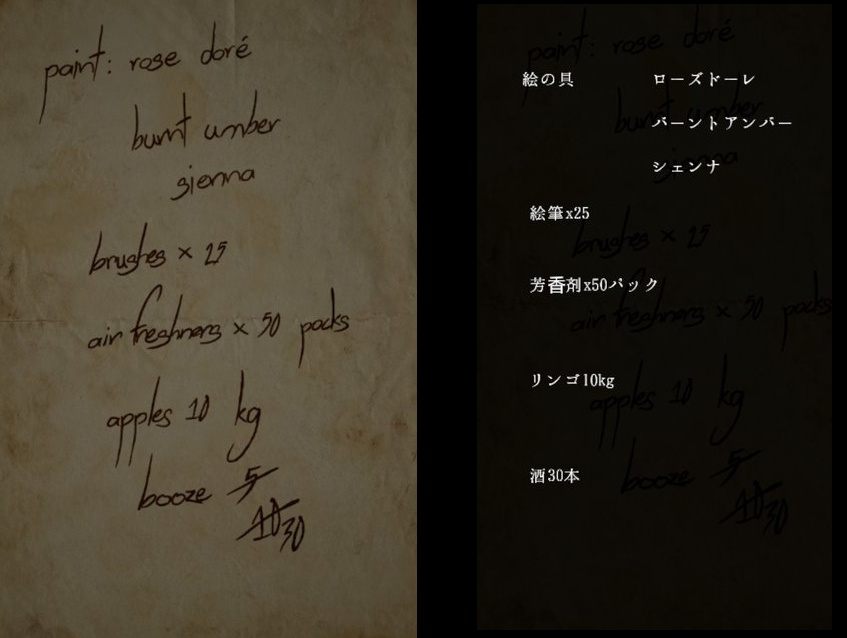 paint: rose doré
burnt umber
sienna
brushes x 25
air freshners x 50 packs
apples 10 kg
booze 5
10 30
絵の具 ローズドーレ
バーントアンバー
シェンナ
絵筆x25
芳香剤x50パック
リンゴ10kg
酒30本